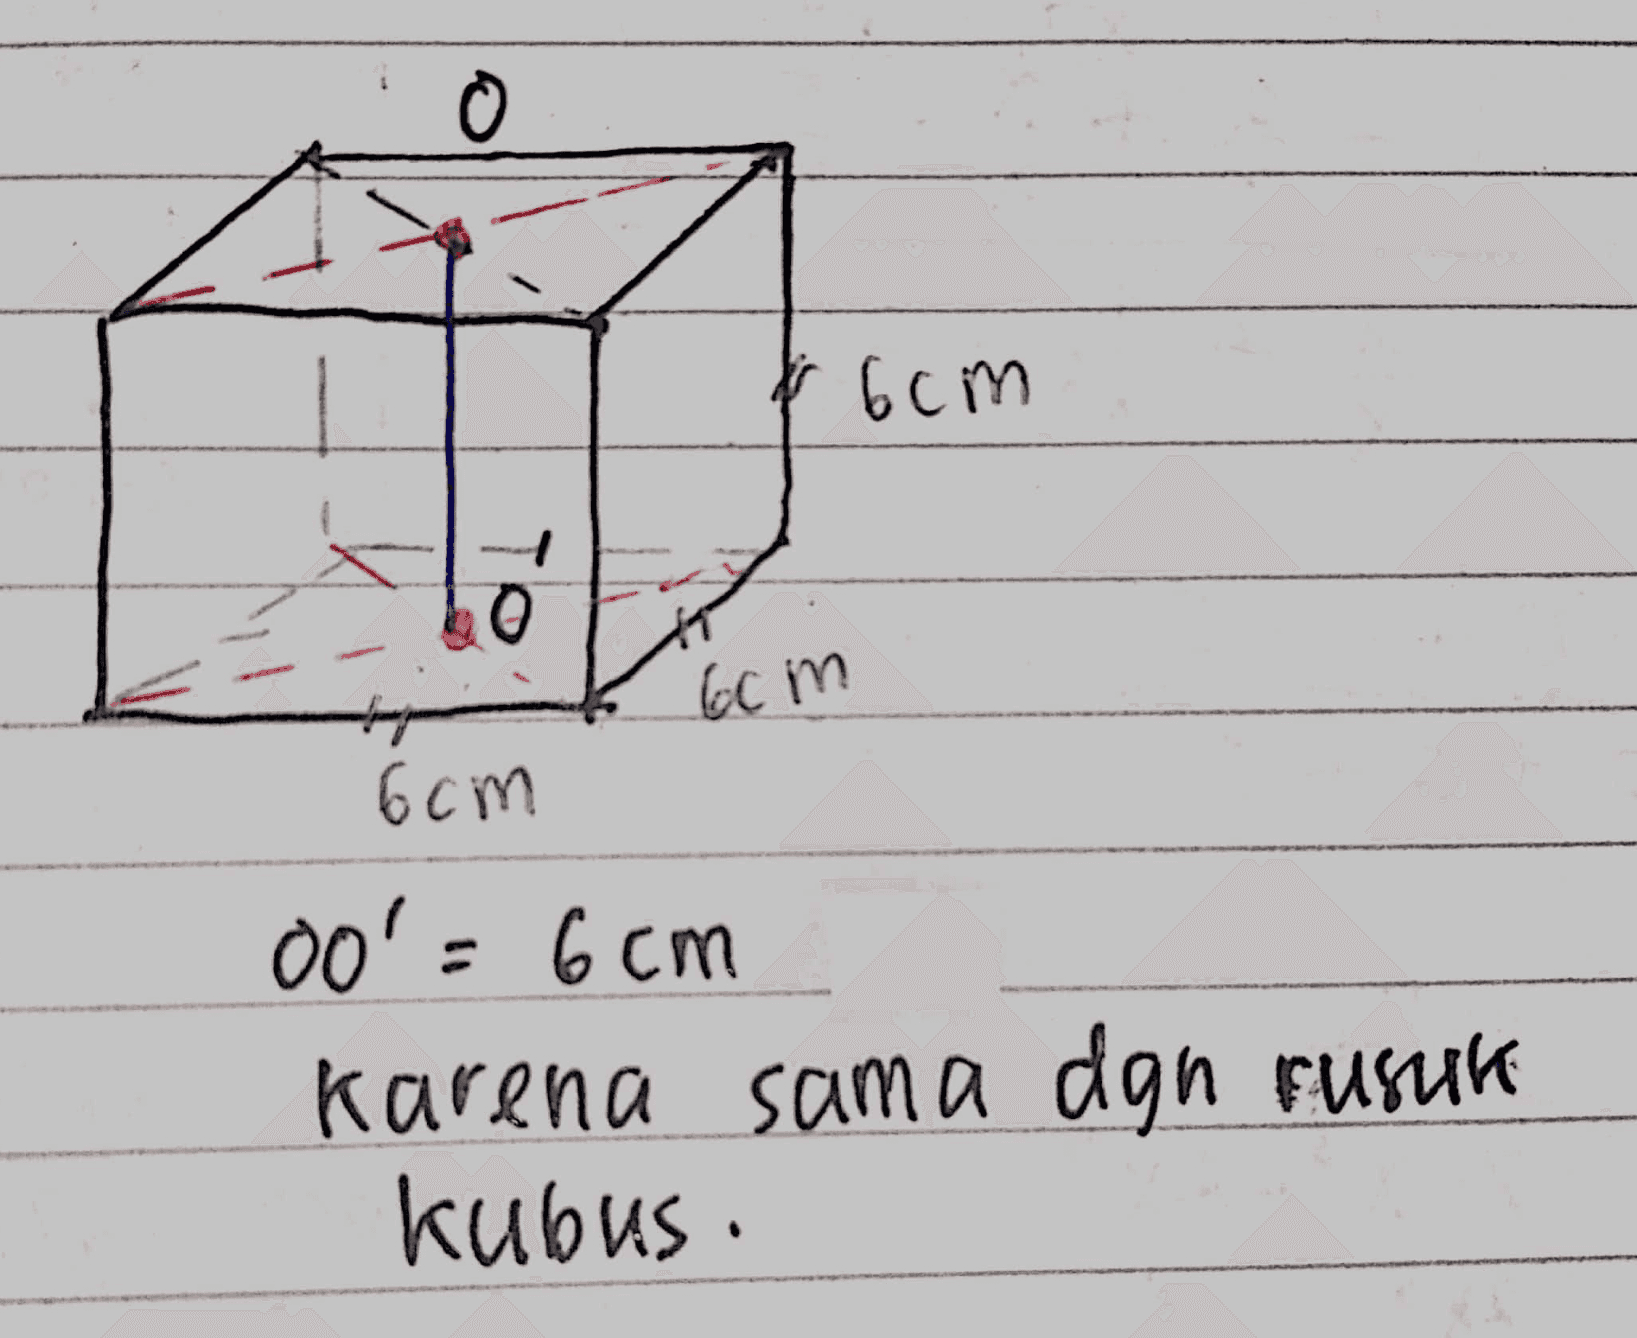 O
6cm
O'
6cm
6cm
OO' = 6cm
karena sama dgn rusuk
kubus.